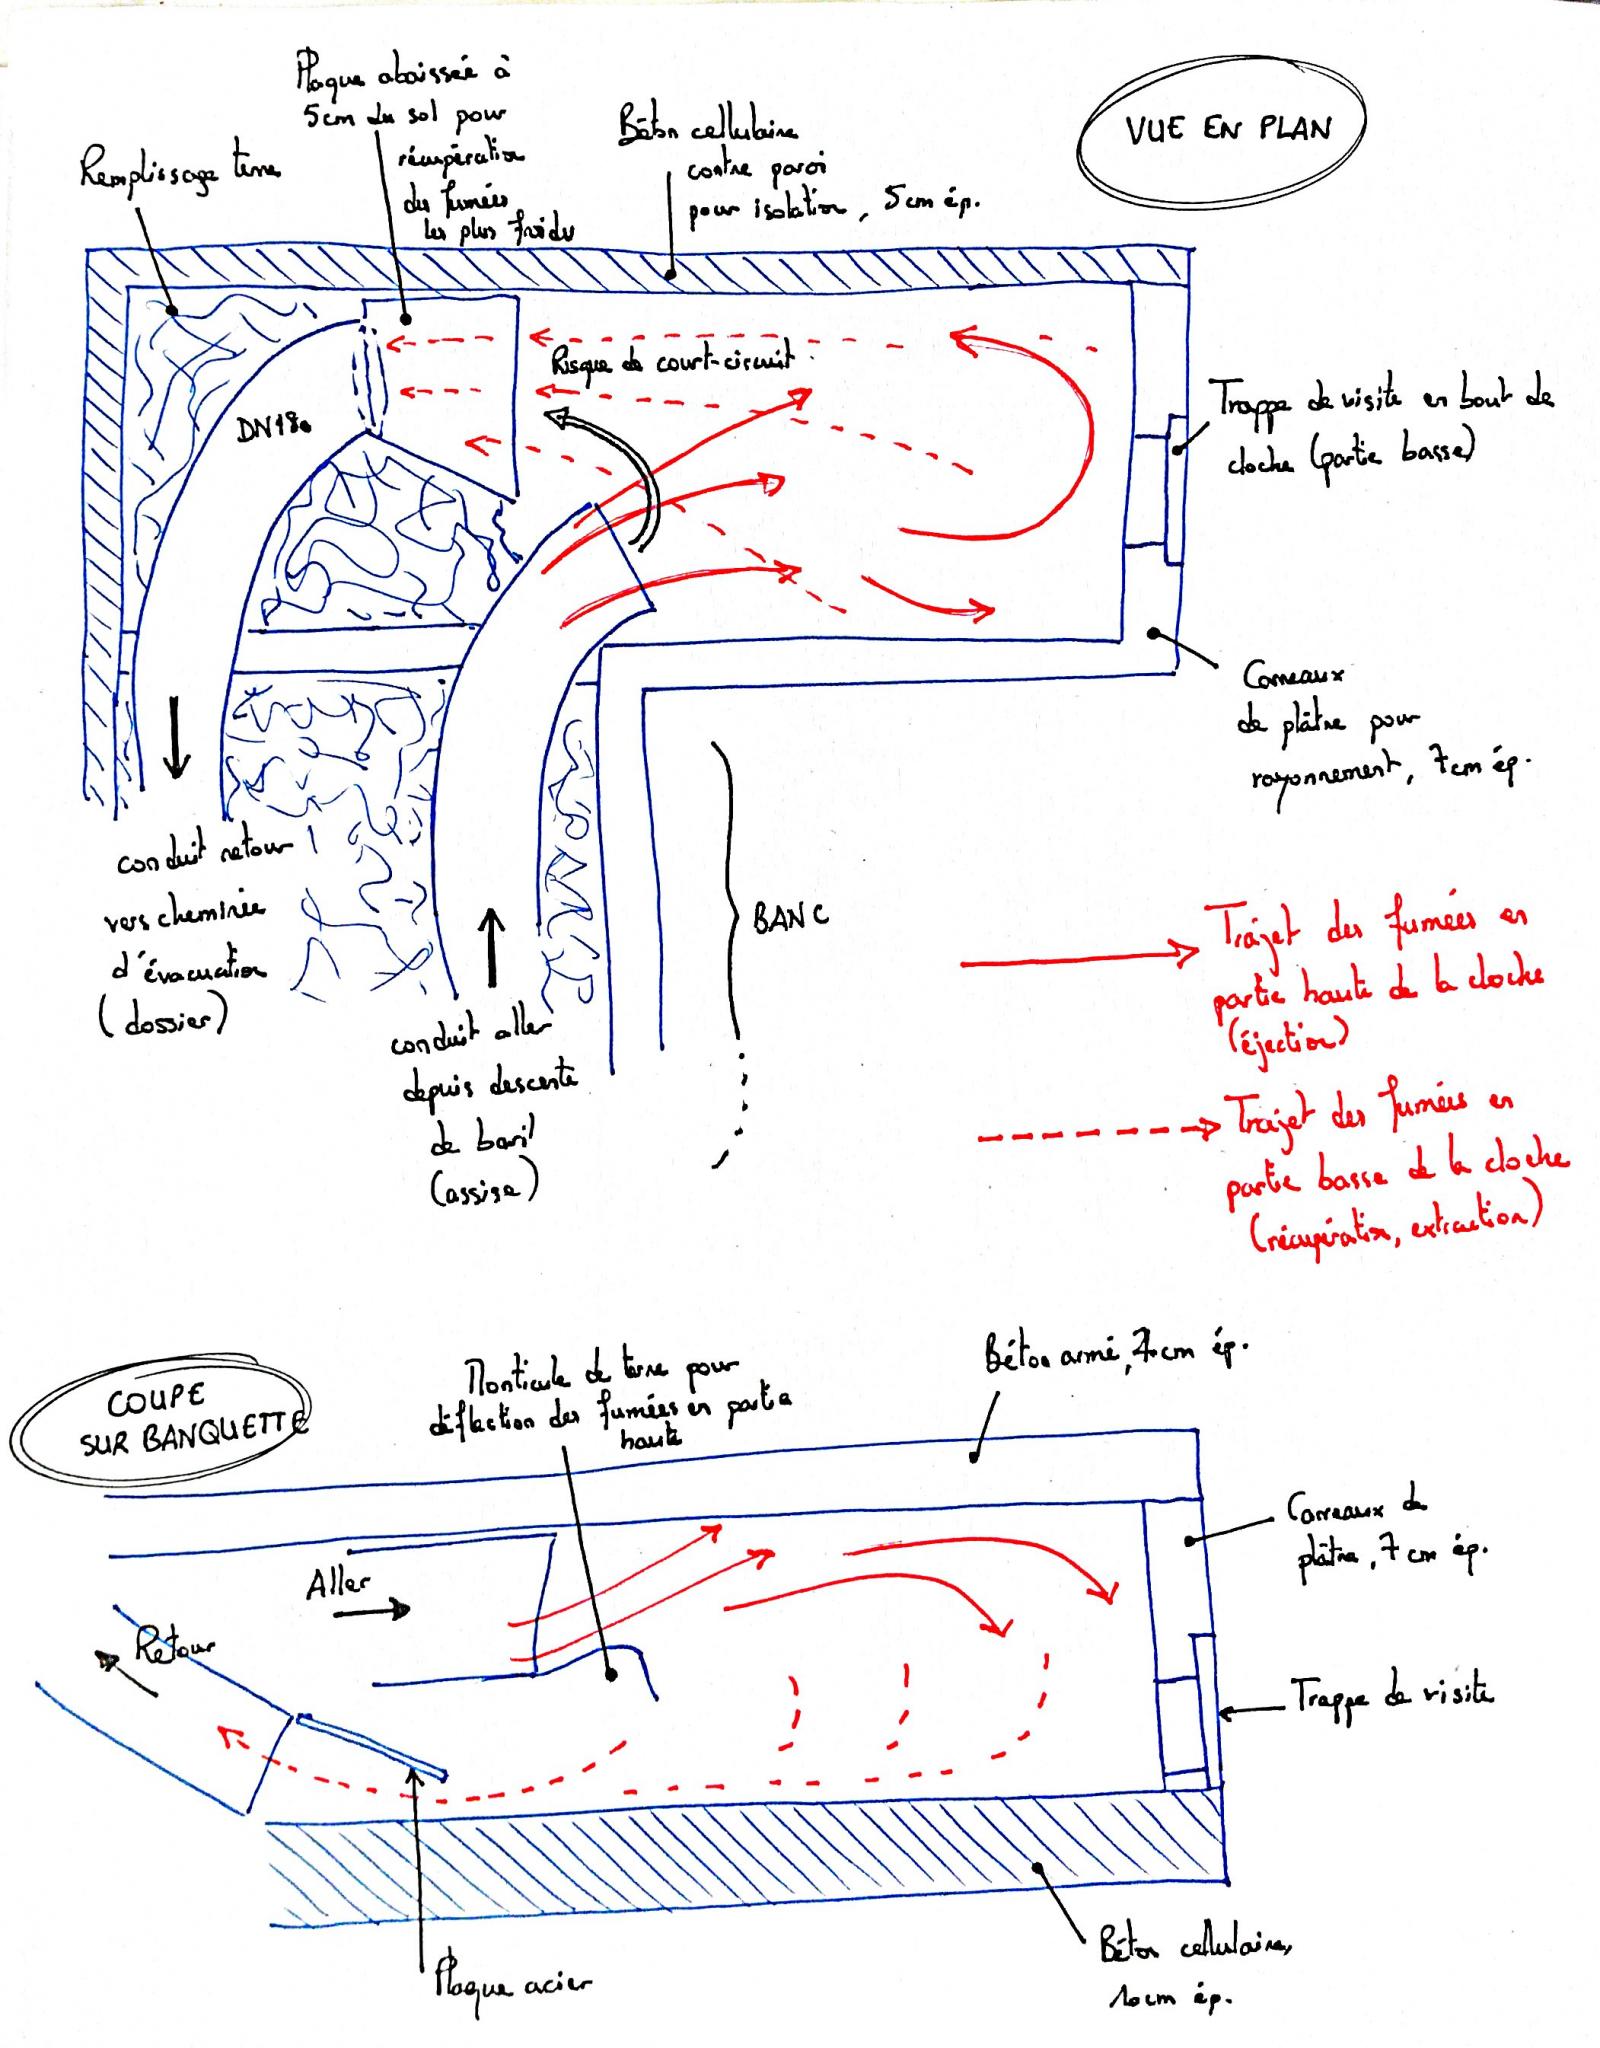 VUE EN PLAN
Plaque abaissée à
5cm du sol pour
récupération
des fumées
les plus froides
Remplissage terre
Béton cellulaire
contre paroi
pour isolation, 5cm ép.
Risque de court-circuit
DN180
Trappe de visite en bout de
cloche (partie basse)
Carreaux
de plâtre pour
rayonnement, 7cm ép.
conduit retour
vers cheminée
d'évacuation
(dossier)
BANC
conduit aller
depuis descente
de baril
(assise)
Trajet des fumées en
partie haute de la cloche
(éjection)
Trajet des fumées en
partie basse de la cloche
(récupération, extraction)
COUPE
SUR BANQUETTE
Monticule de terre pour
déflection des fumées en partie
haute
Béton armé, 7cm ép.
Carreaux de
plâtre, 7cm ép.
Aller
Retour
Trappe de visite
Plaque acier
Béton cellulaire,
10cm ép.